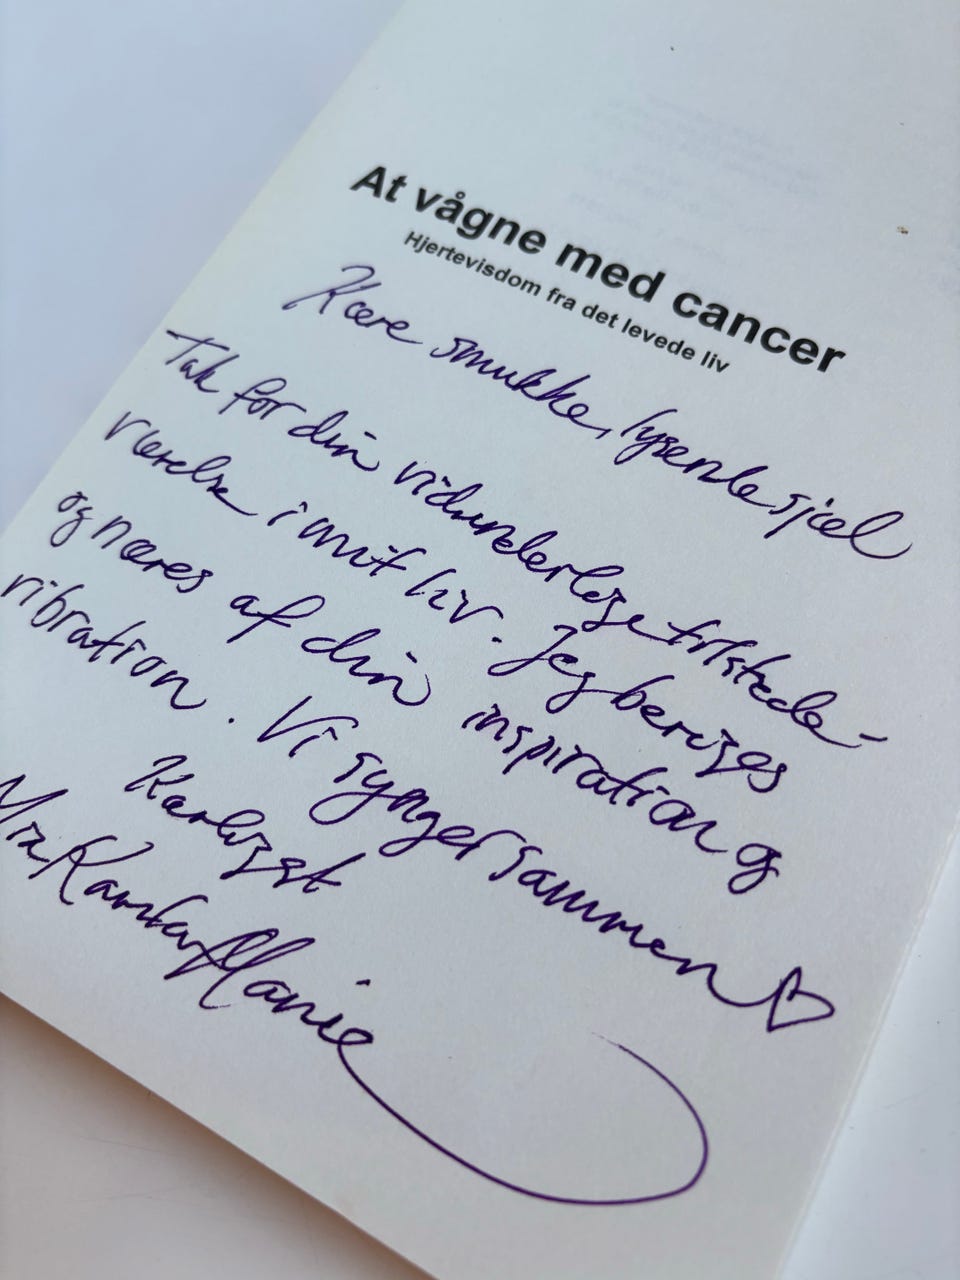 At vågne med cancer
Hjertevisdom fra det levede liv
Kære smukke, lysende sjæl
Tak for din vidunderlige tilstede-
værelse i mit liv. Jeg beriges
og næres af din inspiration og
vibration. Vi synger sammen ♡
Kærligst
Mia Marie